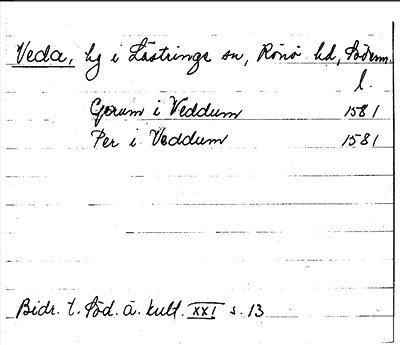 Veda, by i Lästringe sn, Rönö hd, Söderm.
l.
Gorum i Veddum 1581
Per i Veddum 1581
Bidr. t. Söd. ä. kult. XXI s. 13